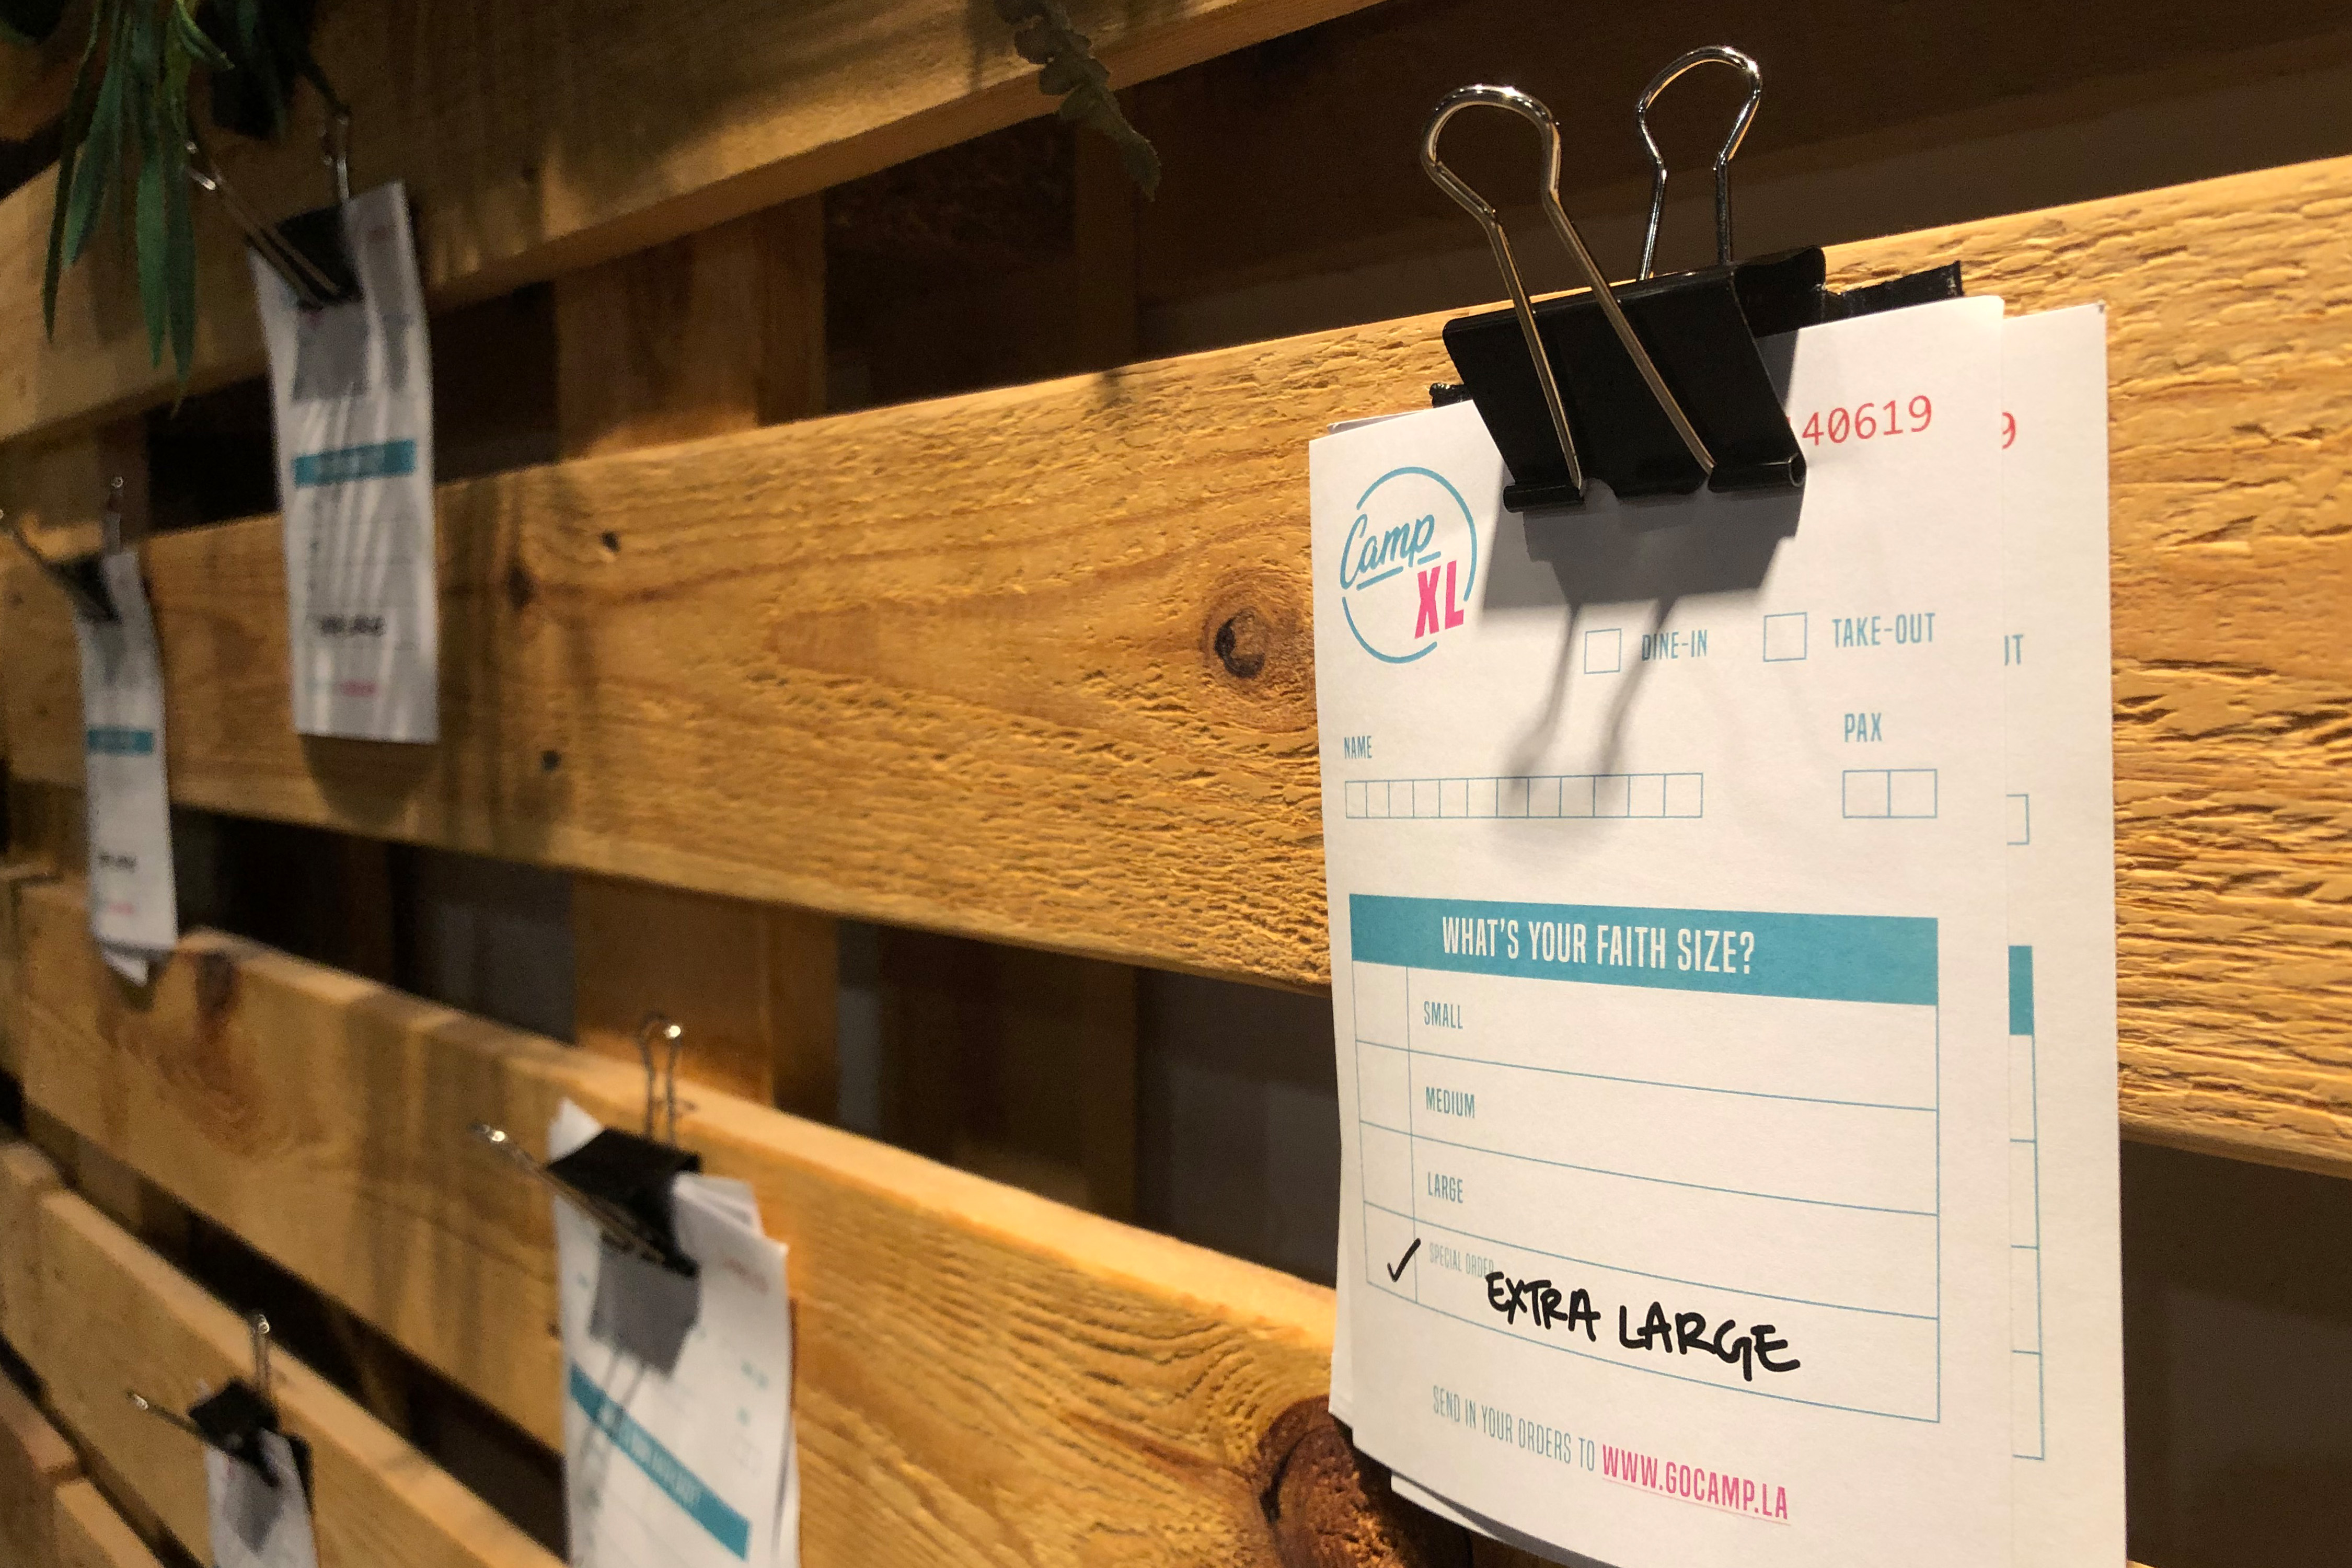 40619
9
Camp
XL
DINE-IN TAKE-OUT
NAME
PAX
WHAT'S YOUR FAITH SIZE?
SMALL
MEDIUM
LARGE
SPECIAL ORDER
EXTRA LARGE
SEND IN YOUR ORDERS TO WWW.GOCAMP.LA